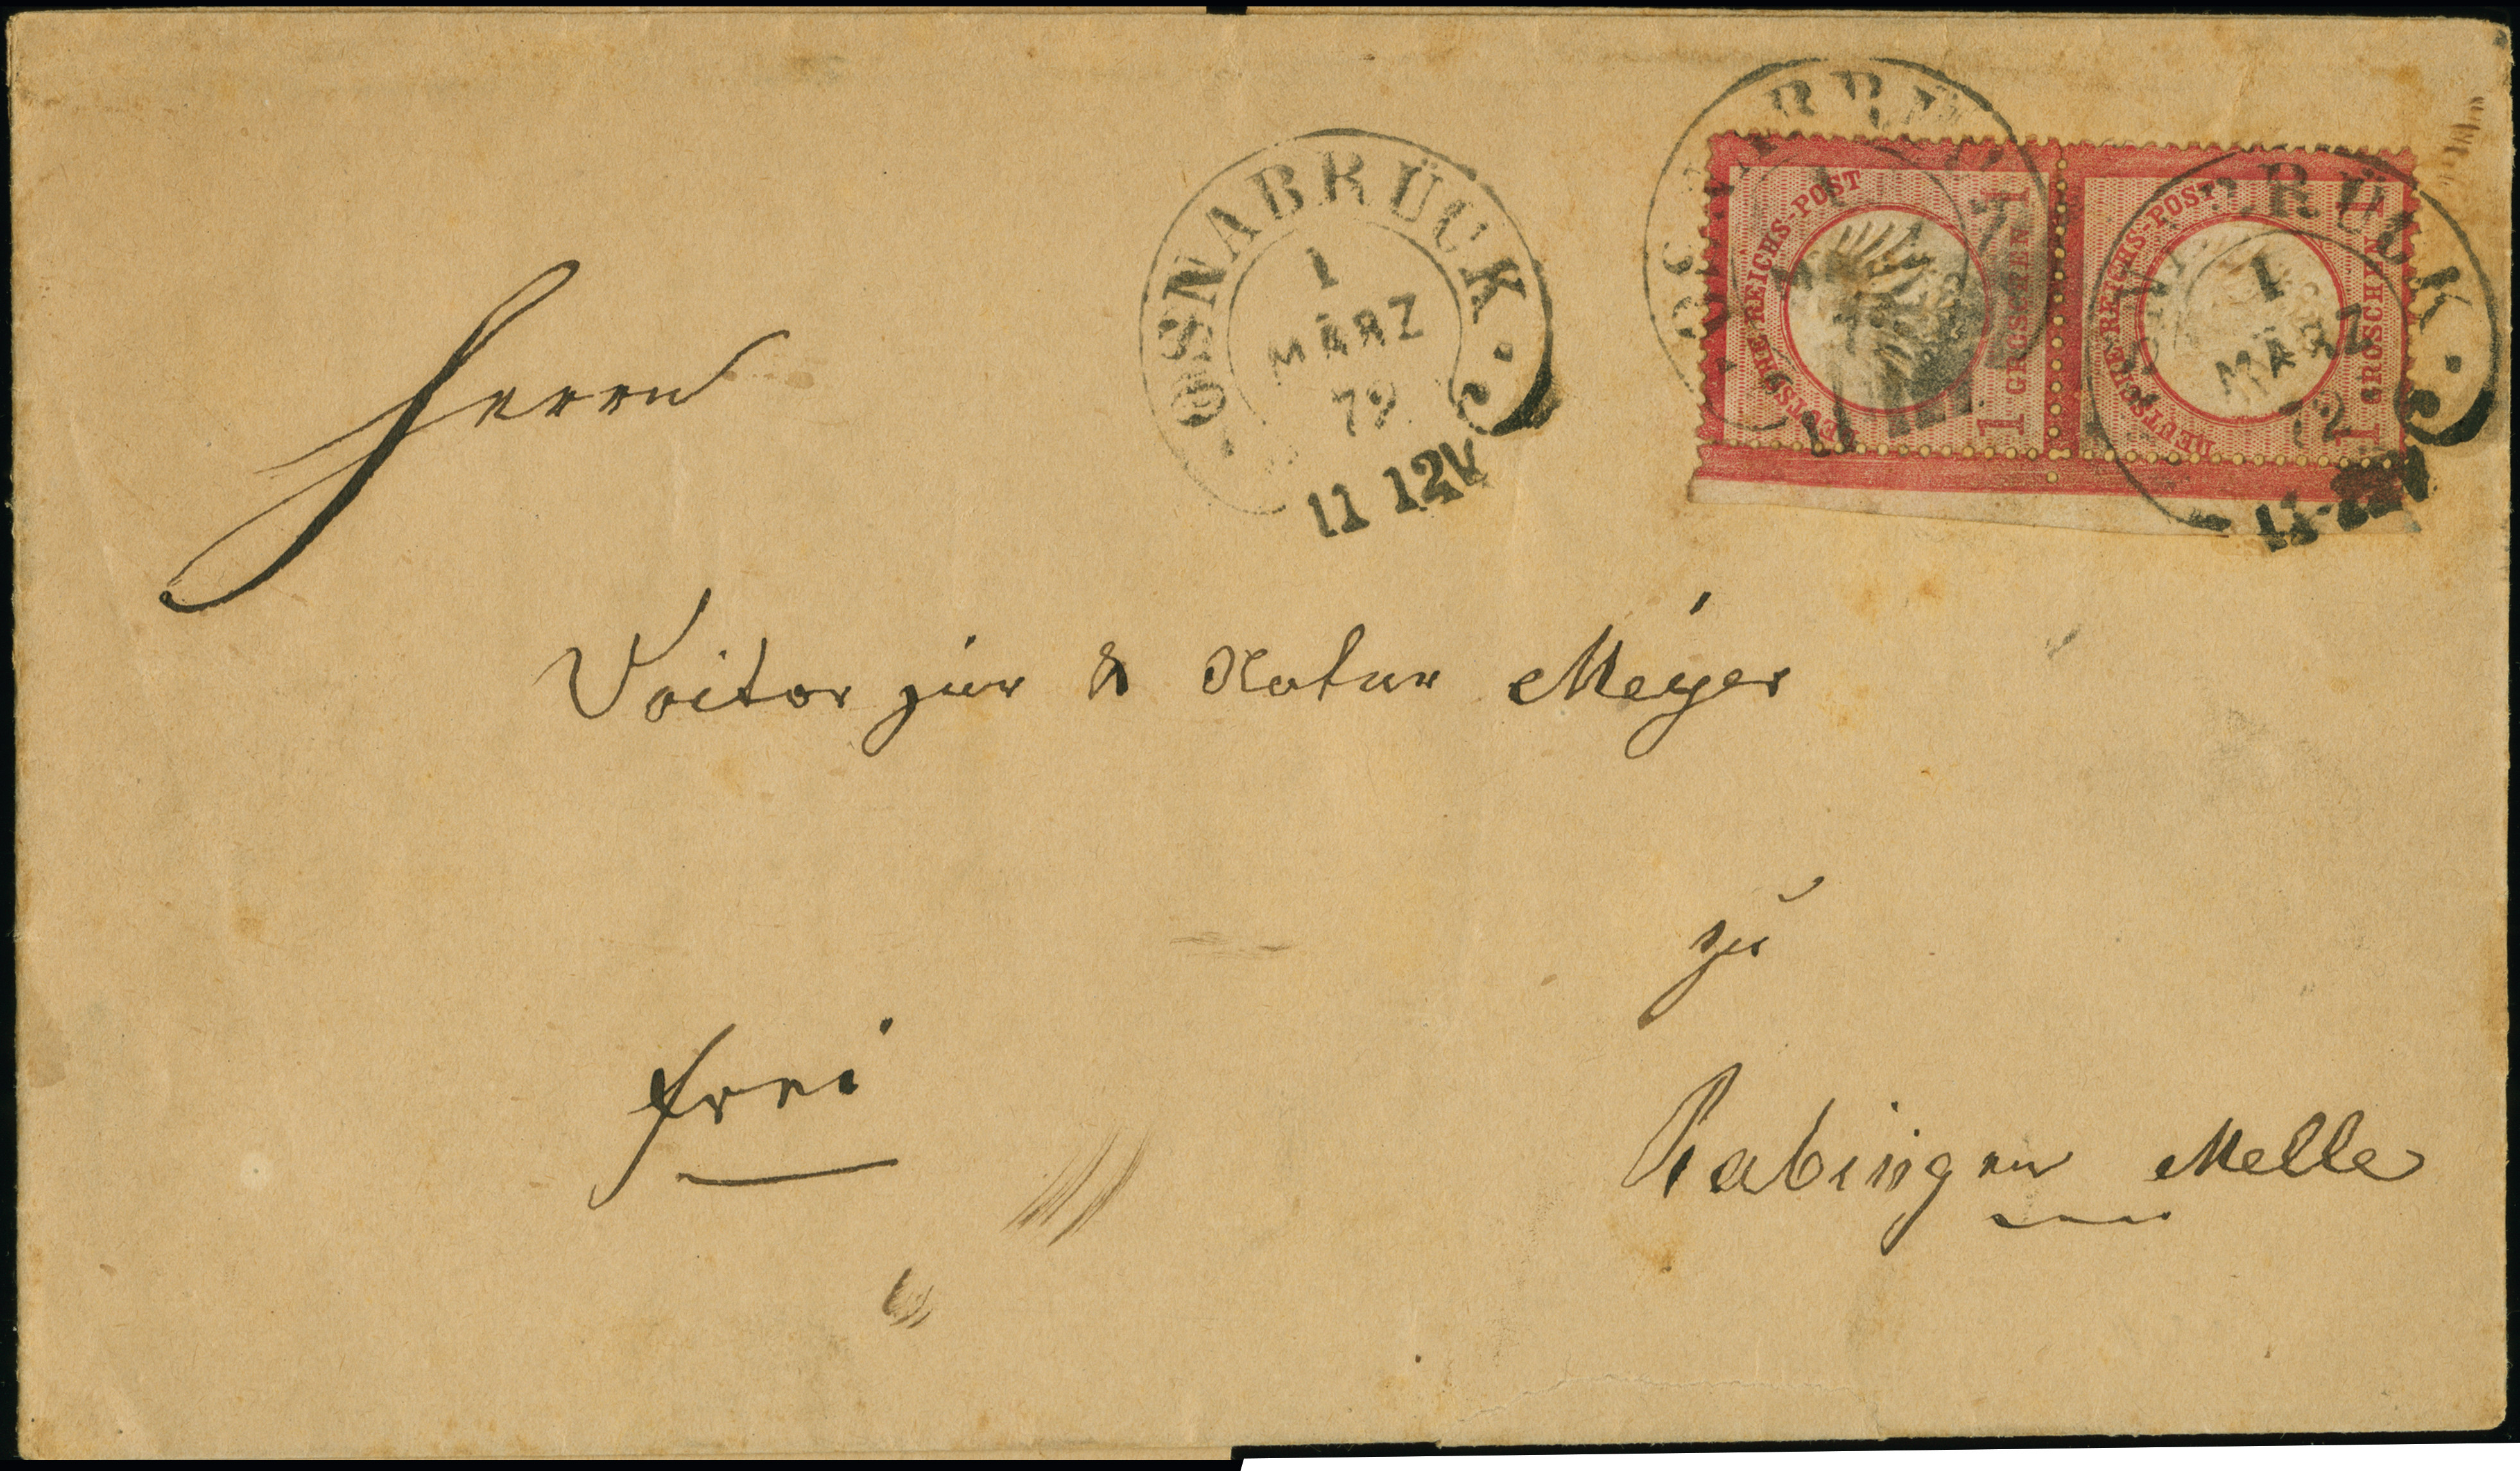 OSNABRÜCK
1
MÄRZ
72
11 12V
OSNABRÜCK
1
DEUTSCHE REICHS-POST
1 GROSCHEN 1
OSNABRÜCK
1
MÄRZ
72
DEUTSCHE REICHS-POST
1 GROSCHEN 1
Herrn
zur Meÿer
zu
frei
Rabingen Melle